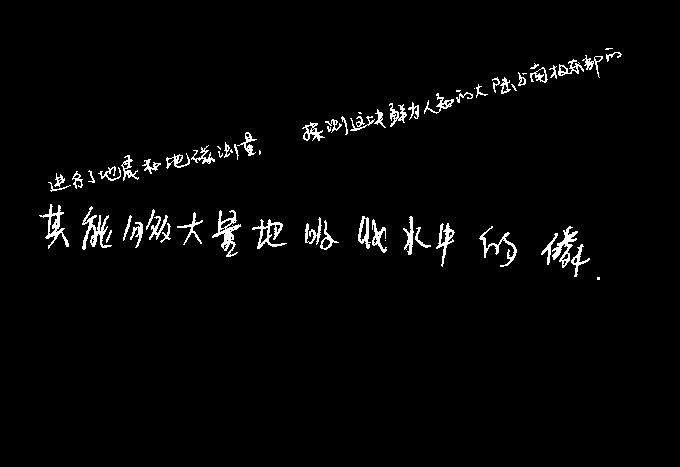 进行了地震和地磁测量, 探测这块鲜为人知的大陆与南极东部的
其能够大量地吸收水中的磷.